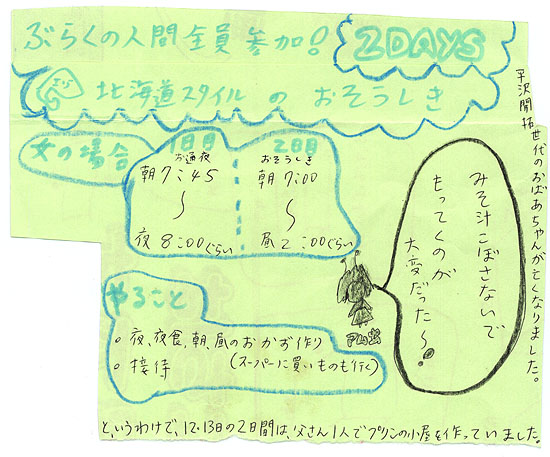 ぶらくの人間全員参加!
2DAYS
北海道スタイルのおそうしき
女の場合
1日目
お通夜
朝7:45
〜
夜8:00ぐらい
2日目
おそうしき
朝7:00
〜
昼2:00ぐらい
平沢開拓世代のおばあちゃんが亡くなりました。
みそ汁こぼさないで
もってくのが
大変だった〜。
やること
・夜、夜食、朝、昼のおかず作り
・接待
(スーパーに買いものも行く)
と、いうわけで、12・13日の2日間は、父さん1人でプリンの小屋を作っていました。